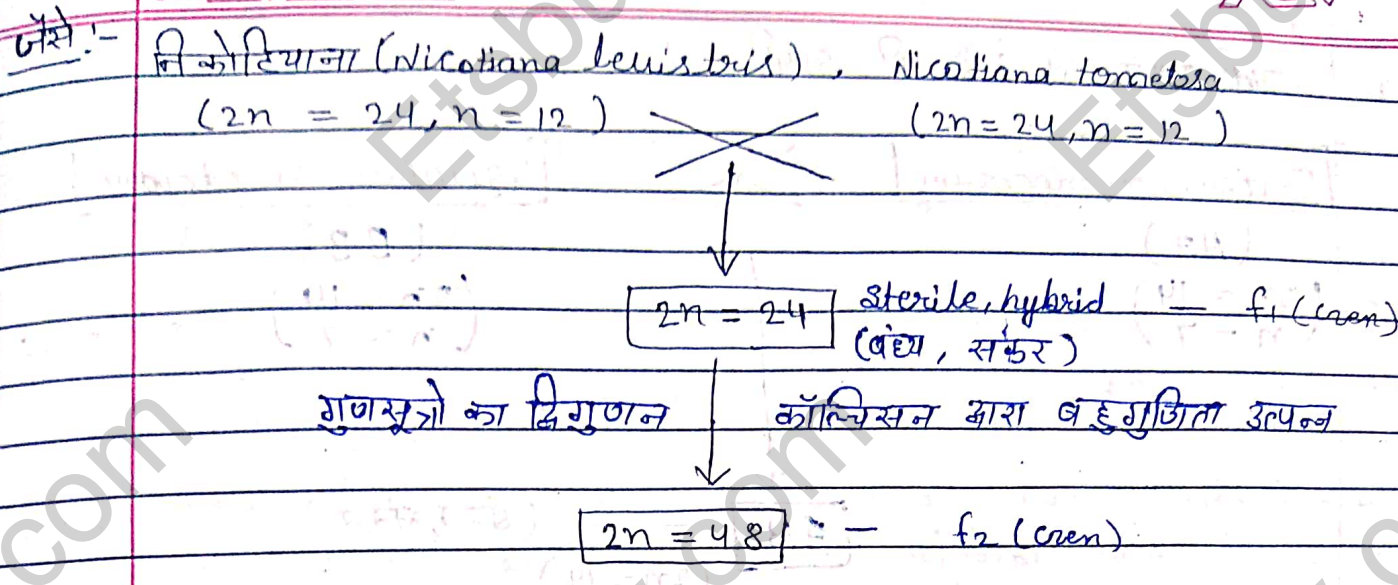 जैसे:-
निकोटियाना (Nicotiana leuistris), Nicotiana tometosa
(2n = 24, n = 12) (2n = 24, n = 12)
2n = 24 Sterile, hybrid — f1 (Gen)
(बंध्य, संकर)
गुणसूत्रो का द्विगुणन कॉल्चिसन द्वारा बहुगुणिता उत्पन्न
2n = 48 :- f2 (Gen)
Etsbu
Etsbu
com
com